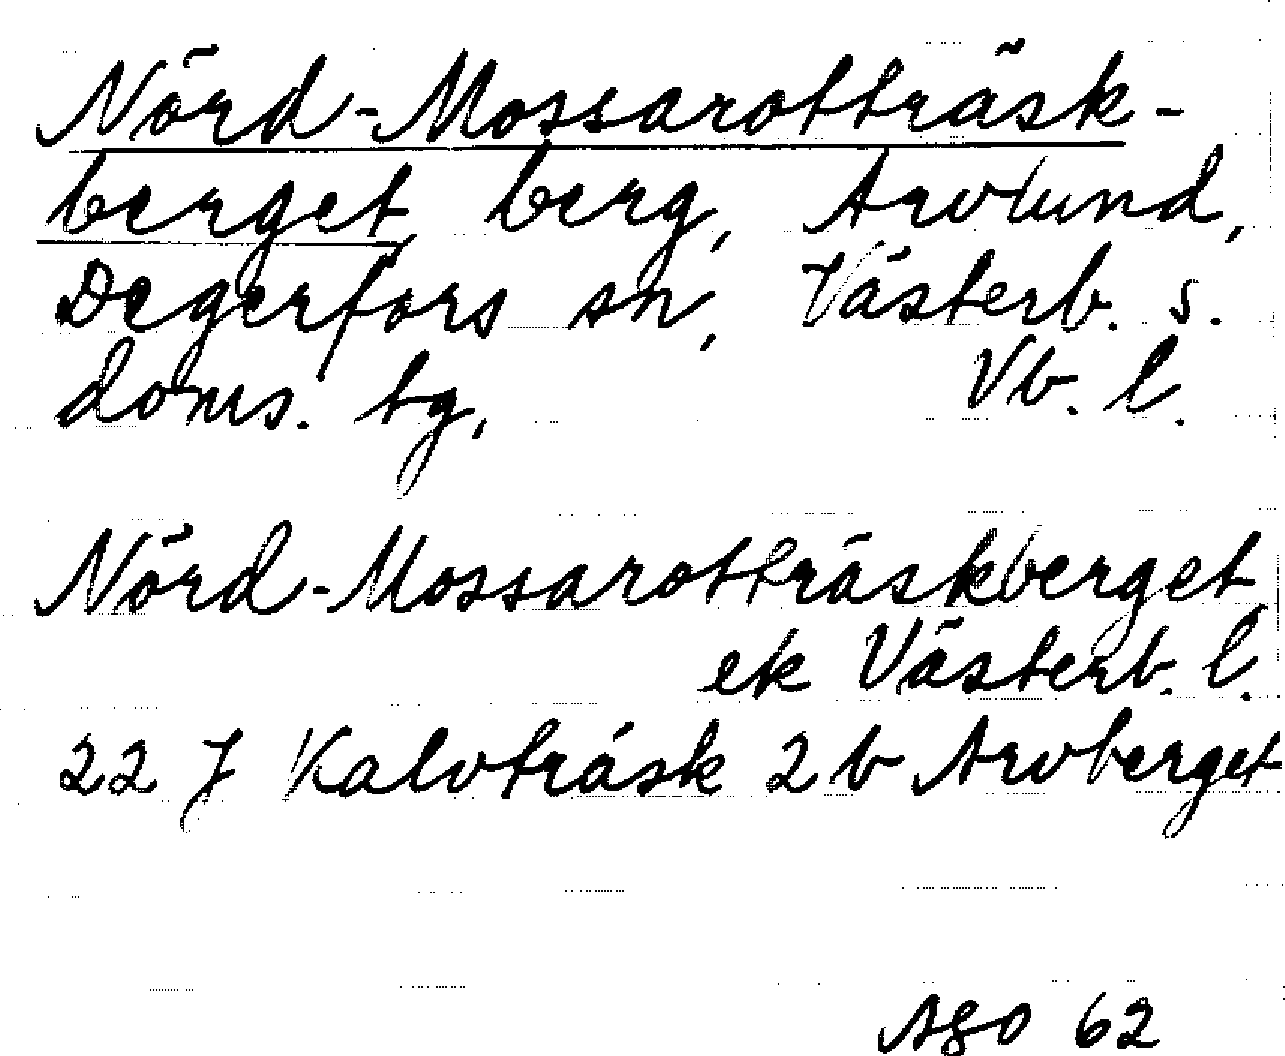 Nörd-Mossarotträsk-
berget, berg, Arvlund,
Degerfors sn, Västerb. s.
doms. tg, Vb. l.
Nörd-Mossarotträskberget,
ek Västerb. l.
22 J Kalvträsk 2 b Arvberget
ASO 62